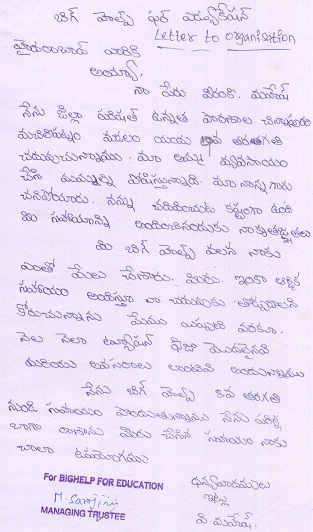 బిగ్ హెల్ప్ ఫర్ ఎడ్యుకేషన్
Letter to organisation
హైదరాబాద్ వారికి
అయ్యా,
నా పేరు వీరంకి. మహేష్
నేను జిల్లా పరిషత్ ఉన్నత పాఠశాల చిన్నాపురం
మచిలీపట్నం మండలం యందు 9వ తరగతి
చదువుచున్నాను. మా అమ్మ వ్యవసాయం
చేసి మమ్మల్ని పోషిస్తున్నాది. మా నాన్న గారు
చనిపోయారు. నన్ను చదివించుట కష్టంగా ఉంది
మీ సహాయాన్ని అందించినందుకు నా కృతజ్ఞతలు
మీ బిగ్ హెల్ప్ వలన నాకు
ఎంతో మేలు చేసారు. మీరు. ఇంకా ఆర్థిక
సహాయం అందిస్తూ నా చదువుకు తోడ్పడాలని
కోరుచున్నాను మేము ఇప్పటి వరకూ.
నెల నెలా ట్యూషన్ ఫీజు మొదలైనవి
మరియు అవసరాలు
నేను బిగ్ హెల్ప్ 8వ తరగతి
నుండి సహాయం పొందుతున్నాను నేను పరీక్ష
బాగా రాశాను మీరు చేసిన సహాయం నాకు
చాలా ఉపయోగము
For BIGHELP FOR EDUCATION
ధన్యవాదములు
ఇట్లు
MANAGING TRUSTEE
వి.మహేష్.